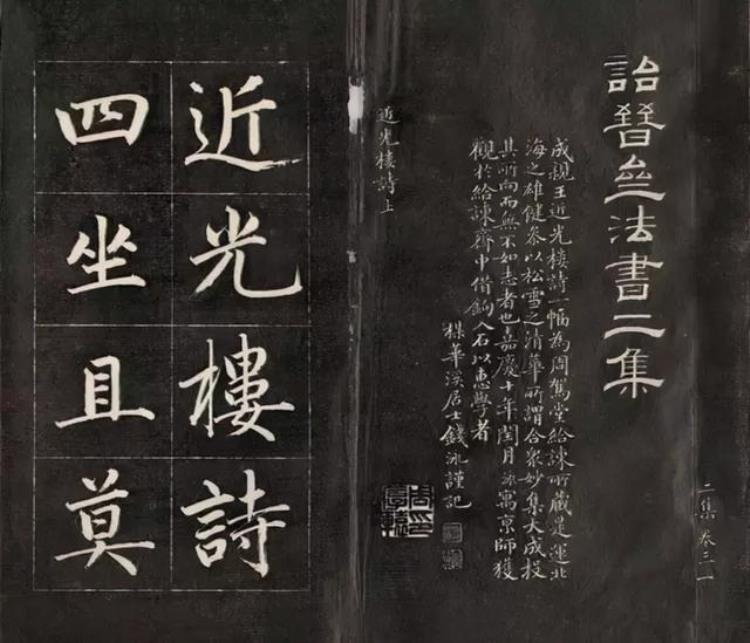 詒晉齋法書二集
二集 卷三 一
成親王近光樓詩一幅為周駕堂給諫所藏是運北
海之雄健參以松雪之清華所謂合眾妙集大成投
其所向而無不如志者也嘉慶十年閏月泳寓京師獲
觀於給諫齋中借鉤入石以惠學者
楳華溪居士錢泳謹記
近光樓詩上
近光樓詩
四坐且莫